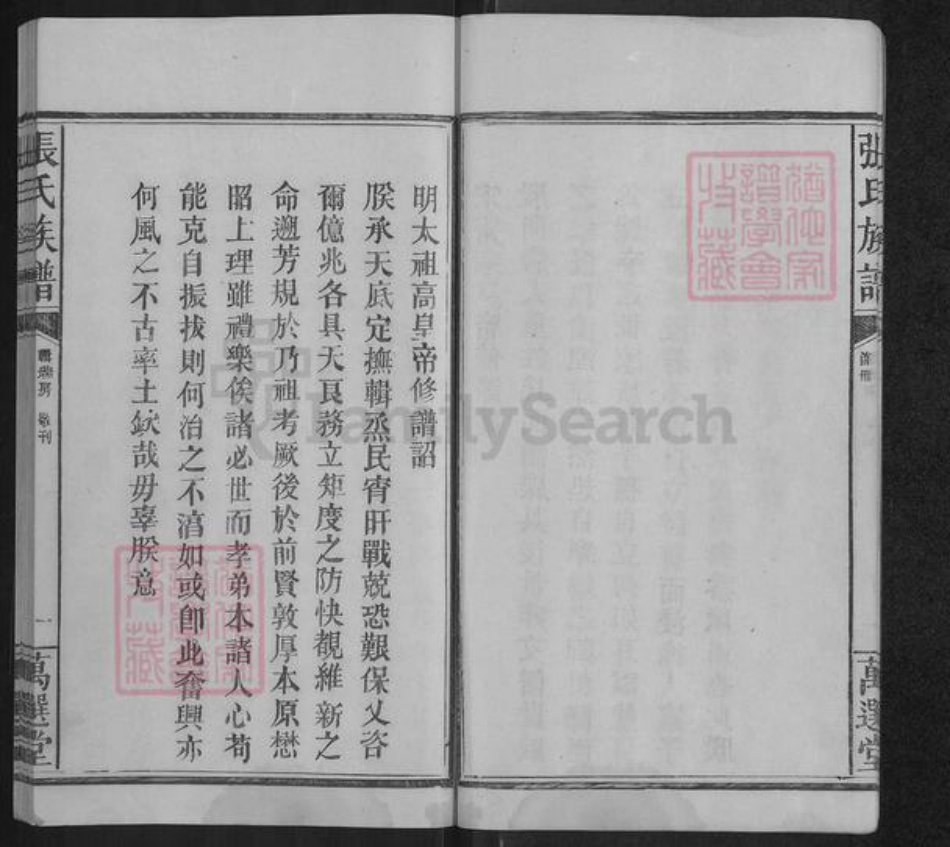 張氏族譜
首冊
萬選堂
明太祖高皇帝修譜詔
朕承天底定撫輯烝民宵旰戰兢恐艱保乂咨
爾億兆各具天良務立矩度之防快覩維新之
命遡芳規於乃祖考厥後於前賢敦厚本原懋
昭上理雖禮樂俟諸必世而孝弟本諸人心苟
能克自振拔則何治之不淯如或卽此奮興亦
何風之不古率土欽哉毋辜朕意
張氏族譜
房 敬刊
一
萬選堂
譜學會
收藏
FamilySearch